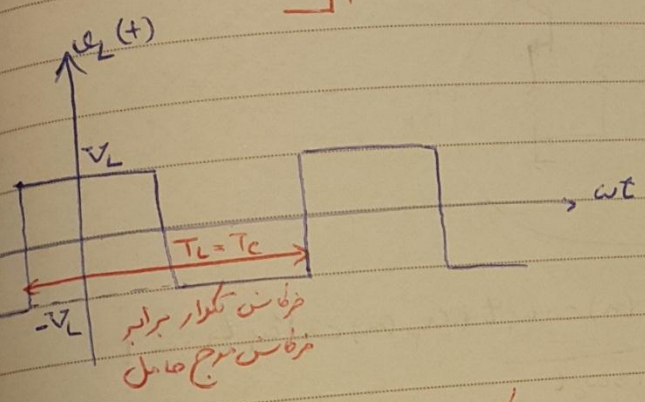 v_L(t)
V_L
ωt
T_L = T_C
-V_L
فرکانس تکرار برابر
فرکانس موج حامل